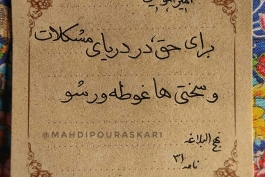 برای حق، در دریای مشکلات
و سختی ها غوطه ور شو
@MAHDIPOURASKARI
نهج البلاغه
نامه ۳۱